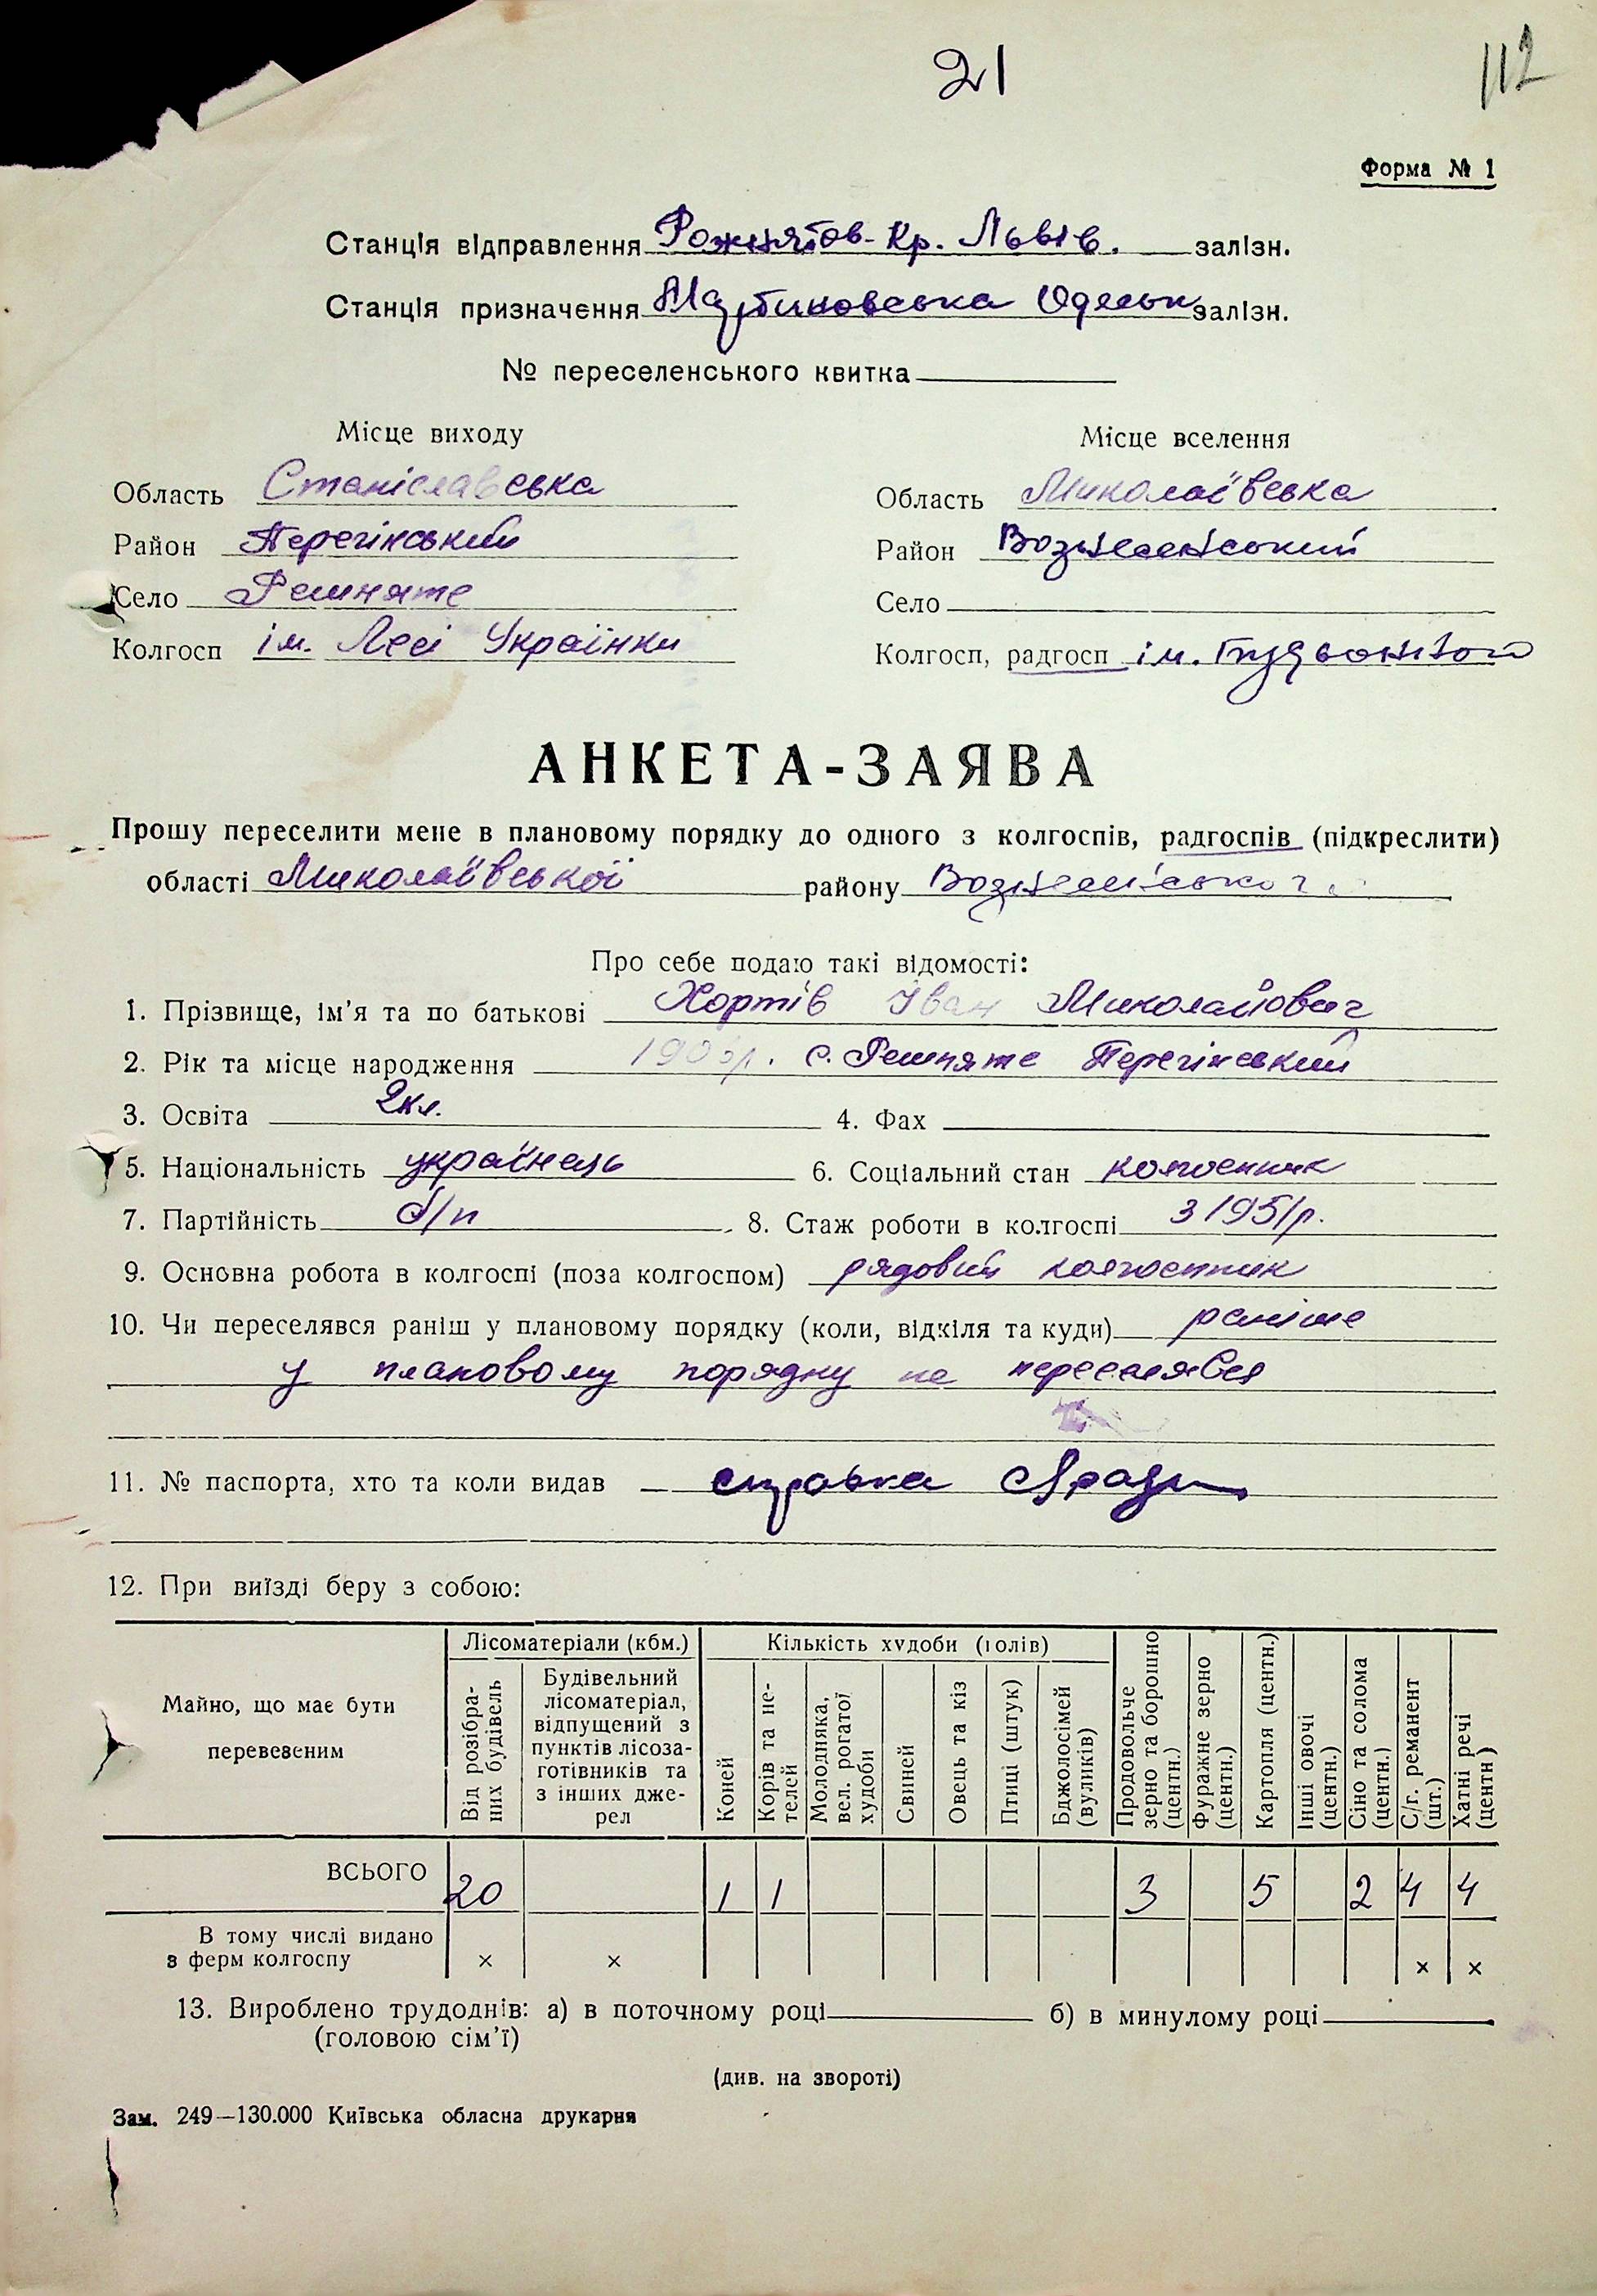 21
112
Форма № 1
Станція відправлення Рожнятов-Кр. Львів. залізн.
Станція призначення Мартиновська Одеськ залізн.
№ переселенського квитка
Місце виходу
Місце вселення
Область Станіславська
Область Миколаївська
Район Перегінський
Район Вознесенський
Село Решняте
Село
Колгосп ім. Лесі Українки
Колгосп, радгосп ім.
АНКЕТА-ЗАЯВА
Прошу переселити мене в плановому порядку до одного з колгоспів, радгоспів (підкреслити)
області Миколаївської району Вознесенського
Про себе подаю такі відомості:
1. Прізвище, ім'я та по батькові Хортів Іван Миколайович
2. Рік та місце народження с. Решняте Перегінський
3. Освіта 2кл. 4. Фах
5. Національність українець 6. Соціальний стан колгоспник
7. Партійність б/п 8. Стаж роботи в колгоспі з 1951р.
9. Основна робота в колгоспі (поза колгоспом) рядовий колгоспник
10. Чи переселявся раніш у плановому порядку (коли, відкіля та куди) раніше
у плановому порядку не переселявся
11. № паспорта, хто та коли видав — справка
12. При виїзді беру з собою:
Майно, що має бути перевезеним
Лісоматеріали (кбм.)
Кількість худоби (голів)
Від розібраних будівель
Будівельний лісоматеріал, відпущений з пунктів лісозаготівників та з інших джерел
Коней
Корів та нетелей
Молодняка, вел. рогатої худоби
Свиней
Овець та кіз
Птиці (штук)
Бджолосімей (вуликів)
Продовольче зерно та борошно (центн.)
Фуражне зерно (центн.)
Картопля (центн.)
Інші овочі (центн.)
Сіно та солома (центн.)
С/г. реманент (шт.)
Хатні речі (центн)
ВСЬОГО 20 1 1 3 5 2 4 4
В тому числі видано
з ферм колгоспу × × × ×
13. Вироблено трудоднів: а) в поточному році б) в минулому році
(головою сім'ї)
(див. на звороті)
Зам. 249—130.000 Київська обласна друкарня